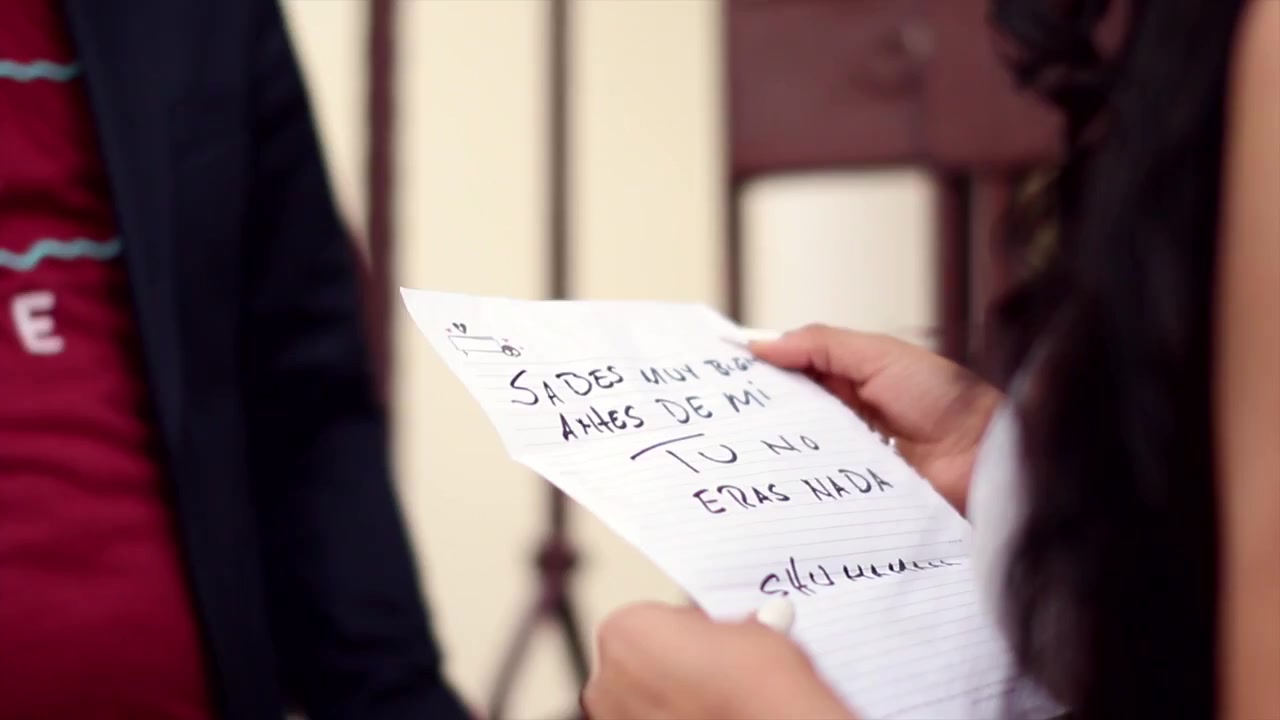 E
SABES MUY BIEN
ANTES DE MI
TU NO
ERAS NADA